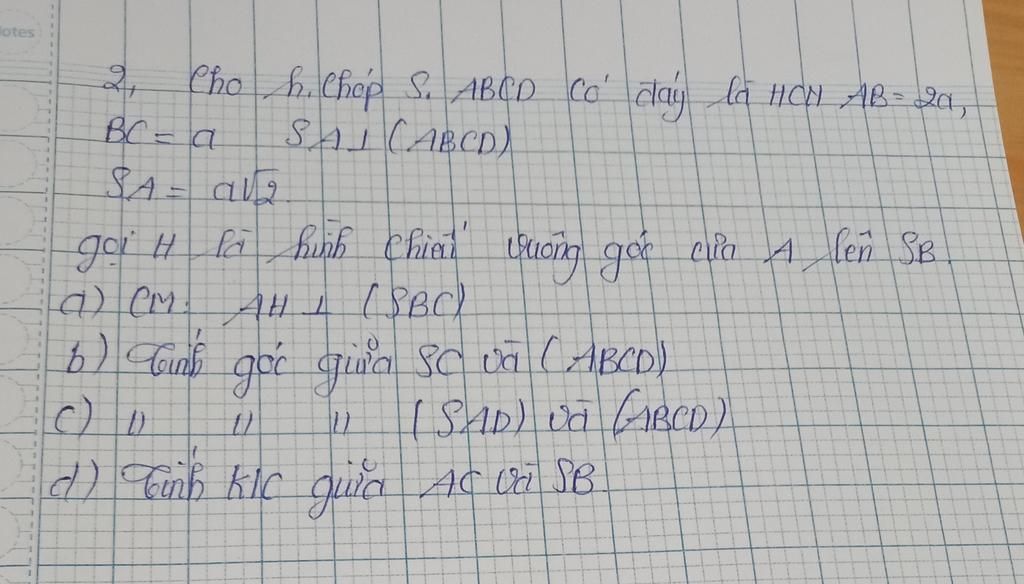 otes
2, Cho h. chóp S. ABCD có đáy là HCN AB = 2a,
BC = a SA ⊥ (ABCD)
SA = a√2
gọi H là hình chiếu vuông góc của A lên SB
a) CM: AH ⊥ (SBC)
b) Tính góc giữa SC và (ABCD)
c) " " " (SAD) và (ABCD)
d) Tính K/C giữa AC và SB